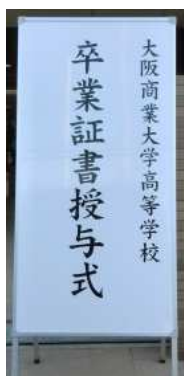 大阪商業大学高等学校
卒業証書授与式